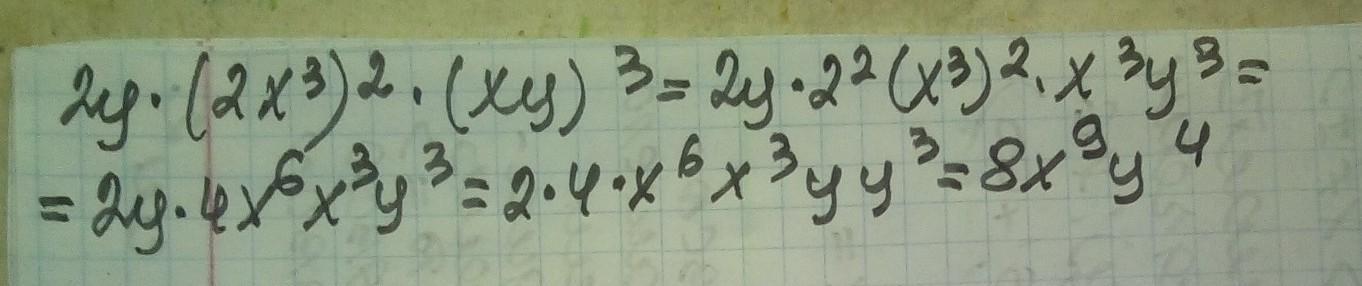 2y·(2x³)²·(xy)³=2y·2²(x³)²·x³y³=
=2y·4x⁶x³y³=2·4·x⁶x³yy³=8x⁹y⁴